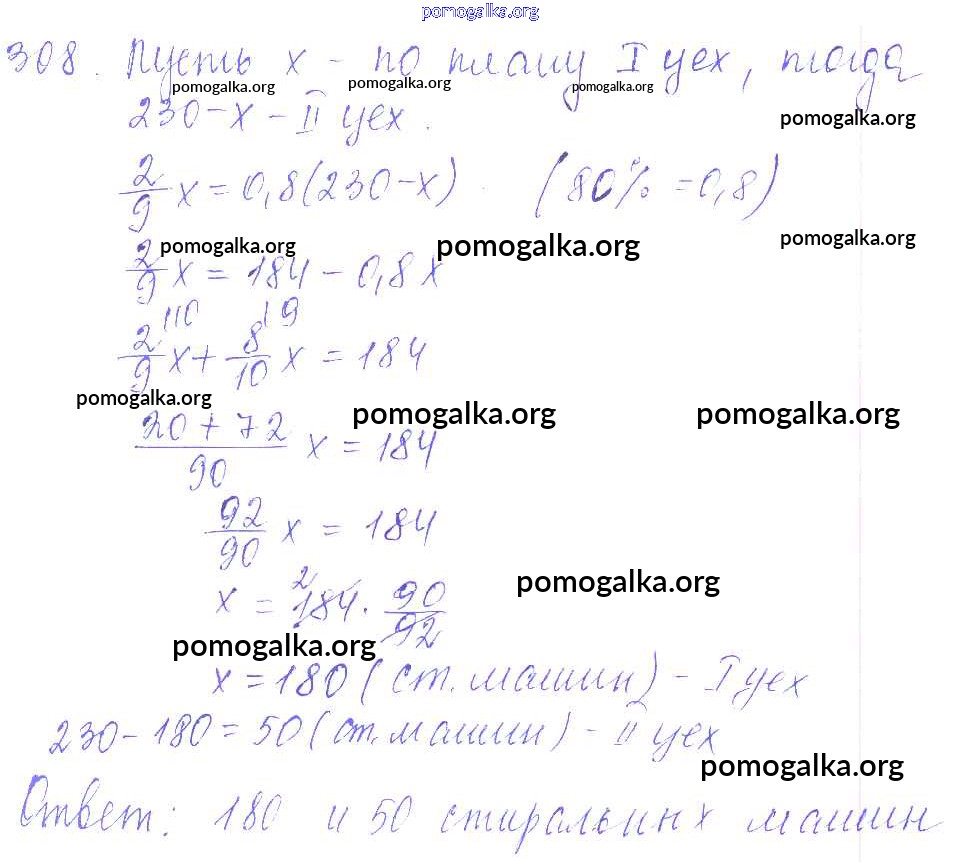 pomogalka.org
308. Пусть x - по плану I цех, тогда
pomogalka.org pomogalka.org pomogalka.org
230-x - II цех.
pomogalka.org
2/9 x = 0,8(230-x). (80% = 0,8)
pomogalka.org pomogalka.org pomogalka.org
2/9 x = 184 - 0,8x
2/9 |10 x + 8/10 |9 x = 184
pomogalka.org pomogalka.org pomogalka.org
20+72/90 x = 184
92/90 x = 184
pomogalka.org
x = 184 2 · 90/92
pomogalka.org
x = 180 (ст. машин) - I цех
230 - 180 = 50 (ст. машин) - II цех
pomogalka.org
Ответ: 180 и 50 стиральных машин